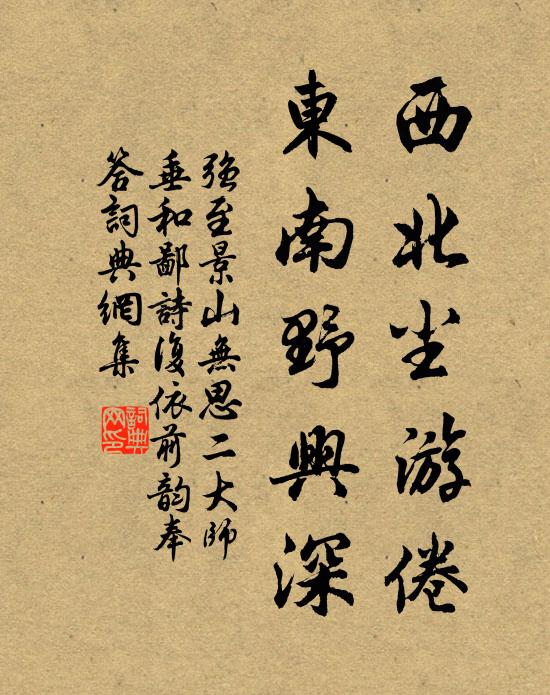 西北尘游倦
東南野興深
強至景山無思二大師
垂和鄙詩復依前韵奉
答詞典網集
詞典
网印